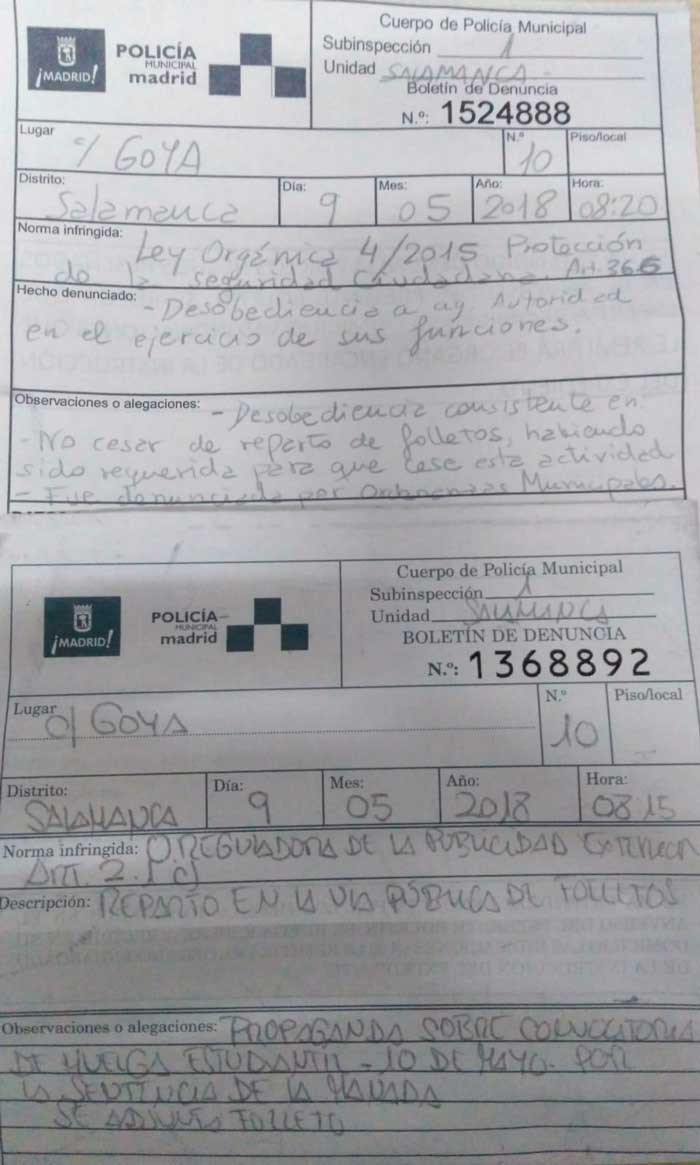 Cuerpo de Policía Municipal
Subinspección 1
Unidad SALAMANCA -
Boletín de Denuncia
N.º: 1524888
¡MADRID!
POLICÍA
MUNICIPAL
madrid
Lugar
c/ GOYA
N.º
10
Piso/local
Distrito:
Salamanca
Día:
9
Mes:
05
Año:
2018
Hora:
08:20
Norma infringida: Ley Orgánica 4/2015 Protección
de la seguridad Ciudadana. Art. 36.6
Hecho denunciado: - Desobediencia a ag. Autoridad
en el ejercicio de sus funciones.
Observaciones o alegaciones: - Desobediencia consistente en
- No cesar de reparto de folletos, habiendo
sido requerida para que cese esta actividad
- Fue denunciada por Ordenanzas Municipales.
Cuerpo de Policía Municipal
Subinspección 1
Unidad SALAMANCA
BOLETÍN DE DENUNCIA
N.º: 1368892
¡MADRID!
POLICÍA
MUNICIPAL
madrid
Lugar
c/ GOYA
N.º
10
Piso/local
Distrito:
SALAMANCA
Día:
9
Mes:
05
Año:
2018
Hora:
08:15
Norma infringida: O. REGULADORA DE LA PUBLICIDAD EXTERIOR
Art. 2.1 c)
Descripción: REPARTO EN LA VIA PÚBLICA DE FOLLETOS
Observaciones o alegaciones: PROPAGANDA SOBRE CONVOCATORIA
DE HUELGA ESTUDIANTIL - 10 DE MAYO. POR
LA SENTENCIA DE LA MANADA
SE ADJUNTA FOLLETO